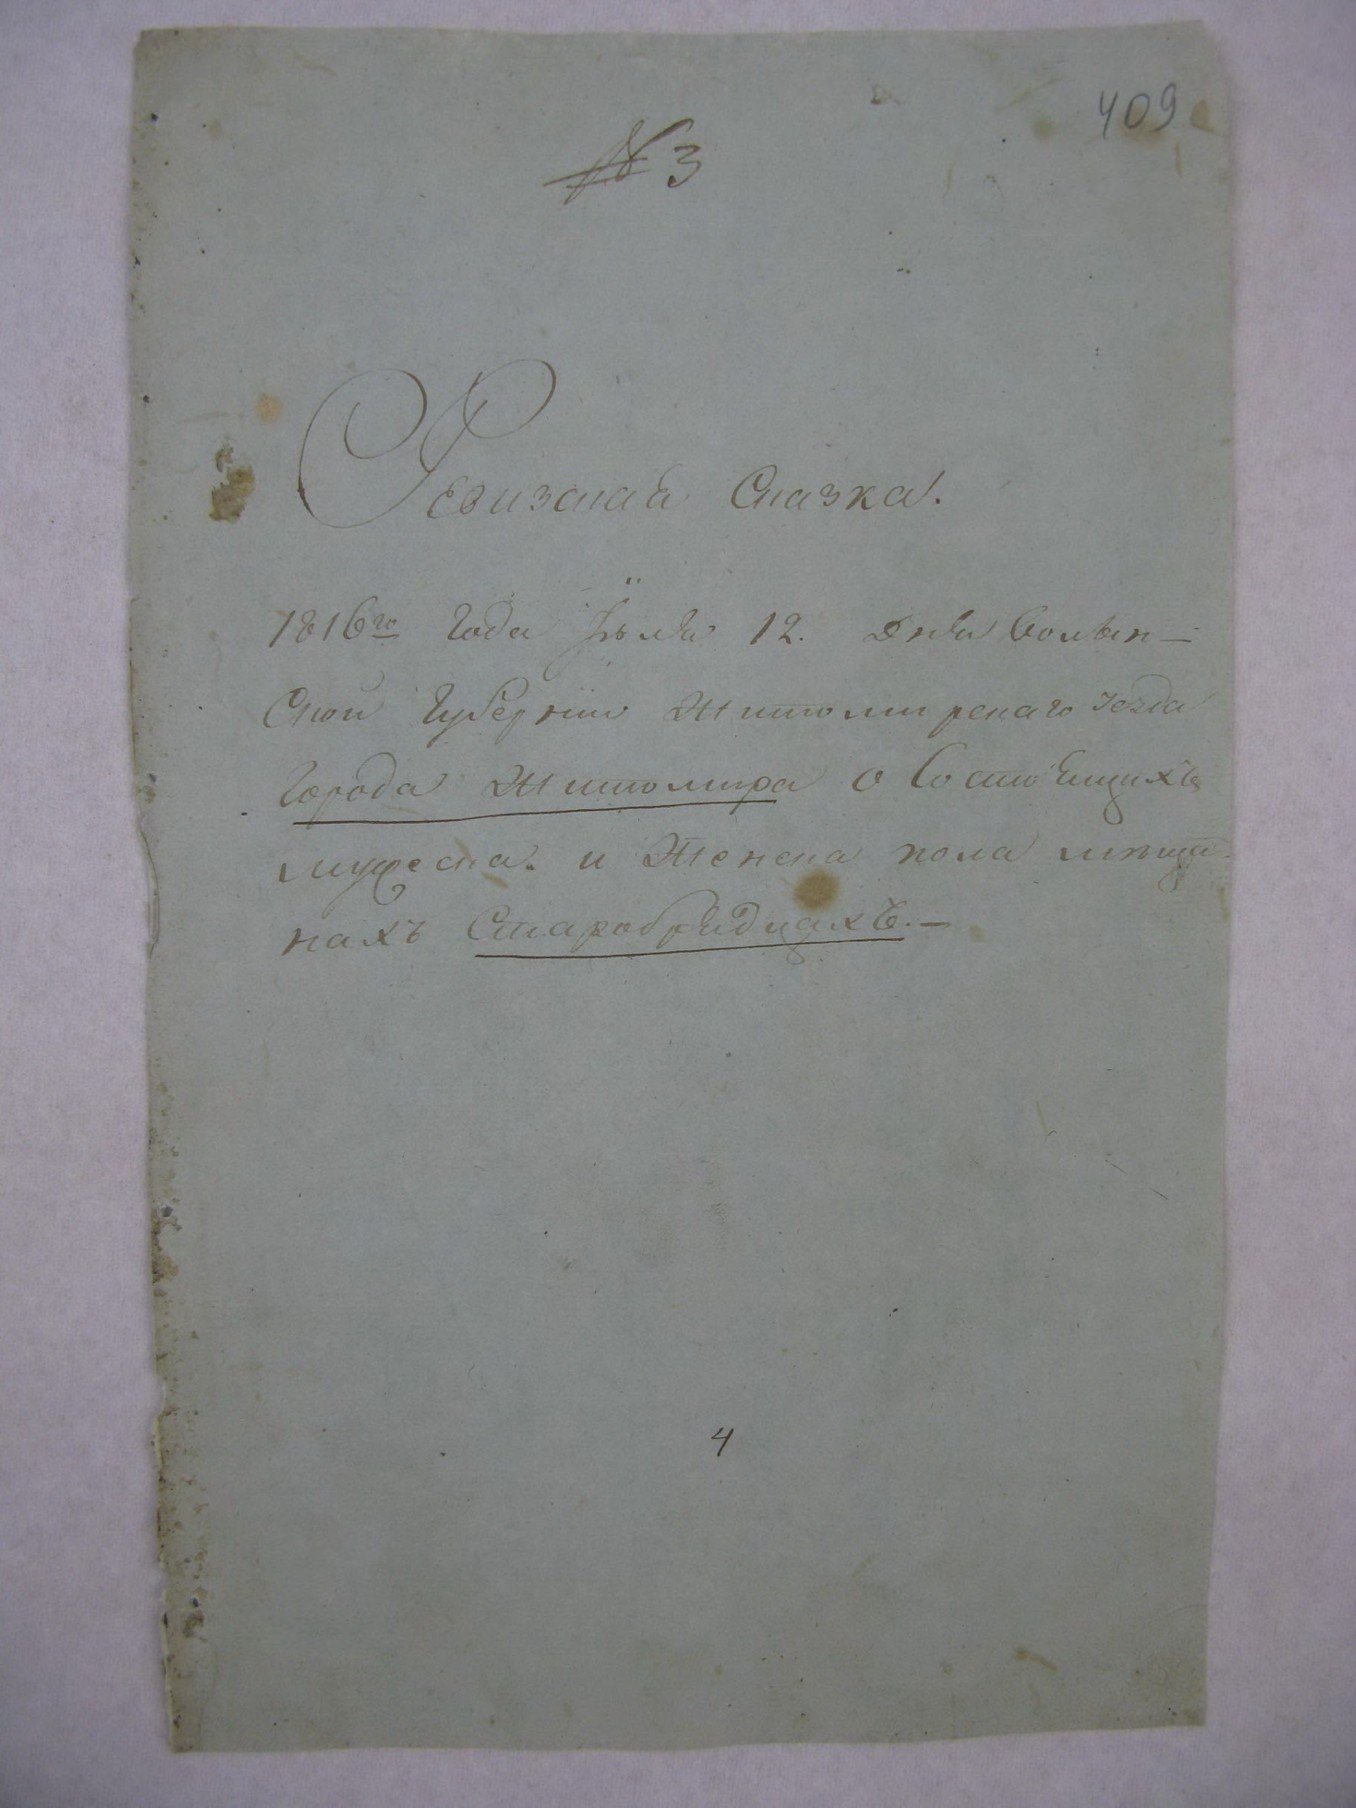 409
№ 3
Ревизская Сказка.
1816го Года Июля 12. Дня Волын-
Ской Губернии Житомирскаго уезда
Города Житомира о Состоящихъ
мужеска. и Женска пола меща-
нахъ Старобрядцахъ. –
4